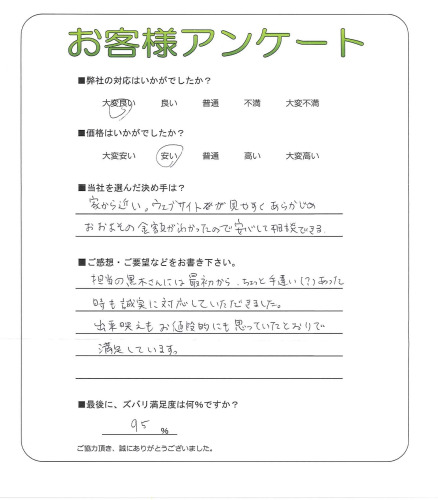 お客様アンケート
■弊社の対応はいかがでしたか？
大変良い 良い 普通 不満 大変不満
■価格はいかがでしたか？
大変安い 安い 普通 高い 大変高い
■当社を選んだ決め手は？
家から近い。ウェブサイトが見やすくあらかじめ
おおよその金額がわかったので安心して相談できる
■ご感想・ご要望などをお書き下さい。
担当の黒木さんには最初から、ちょっと手違い(?)あった
時も誠実に対応していただきました。
出来映えもお値段的にも思っていたとおりで
満足しています。
■最後に、ズバリ満足度は何％ですか？
95 ％
ご協力頂き、誠にありがとうございました。